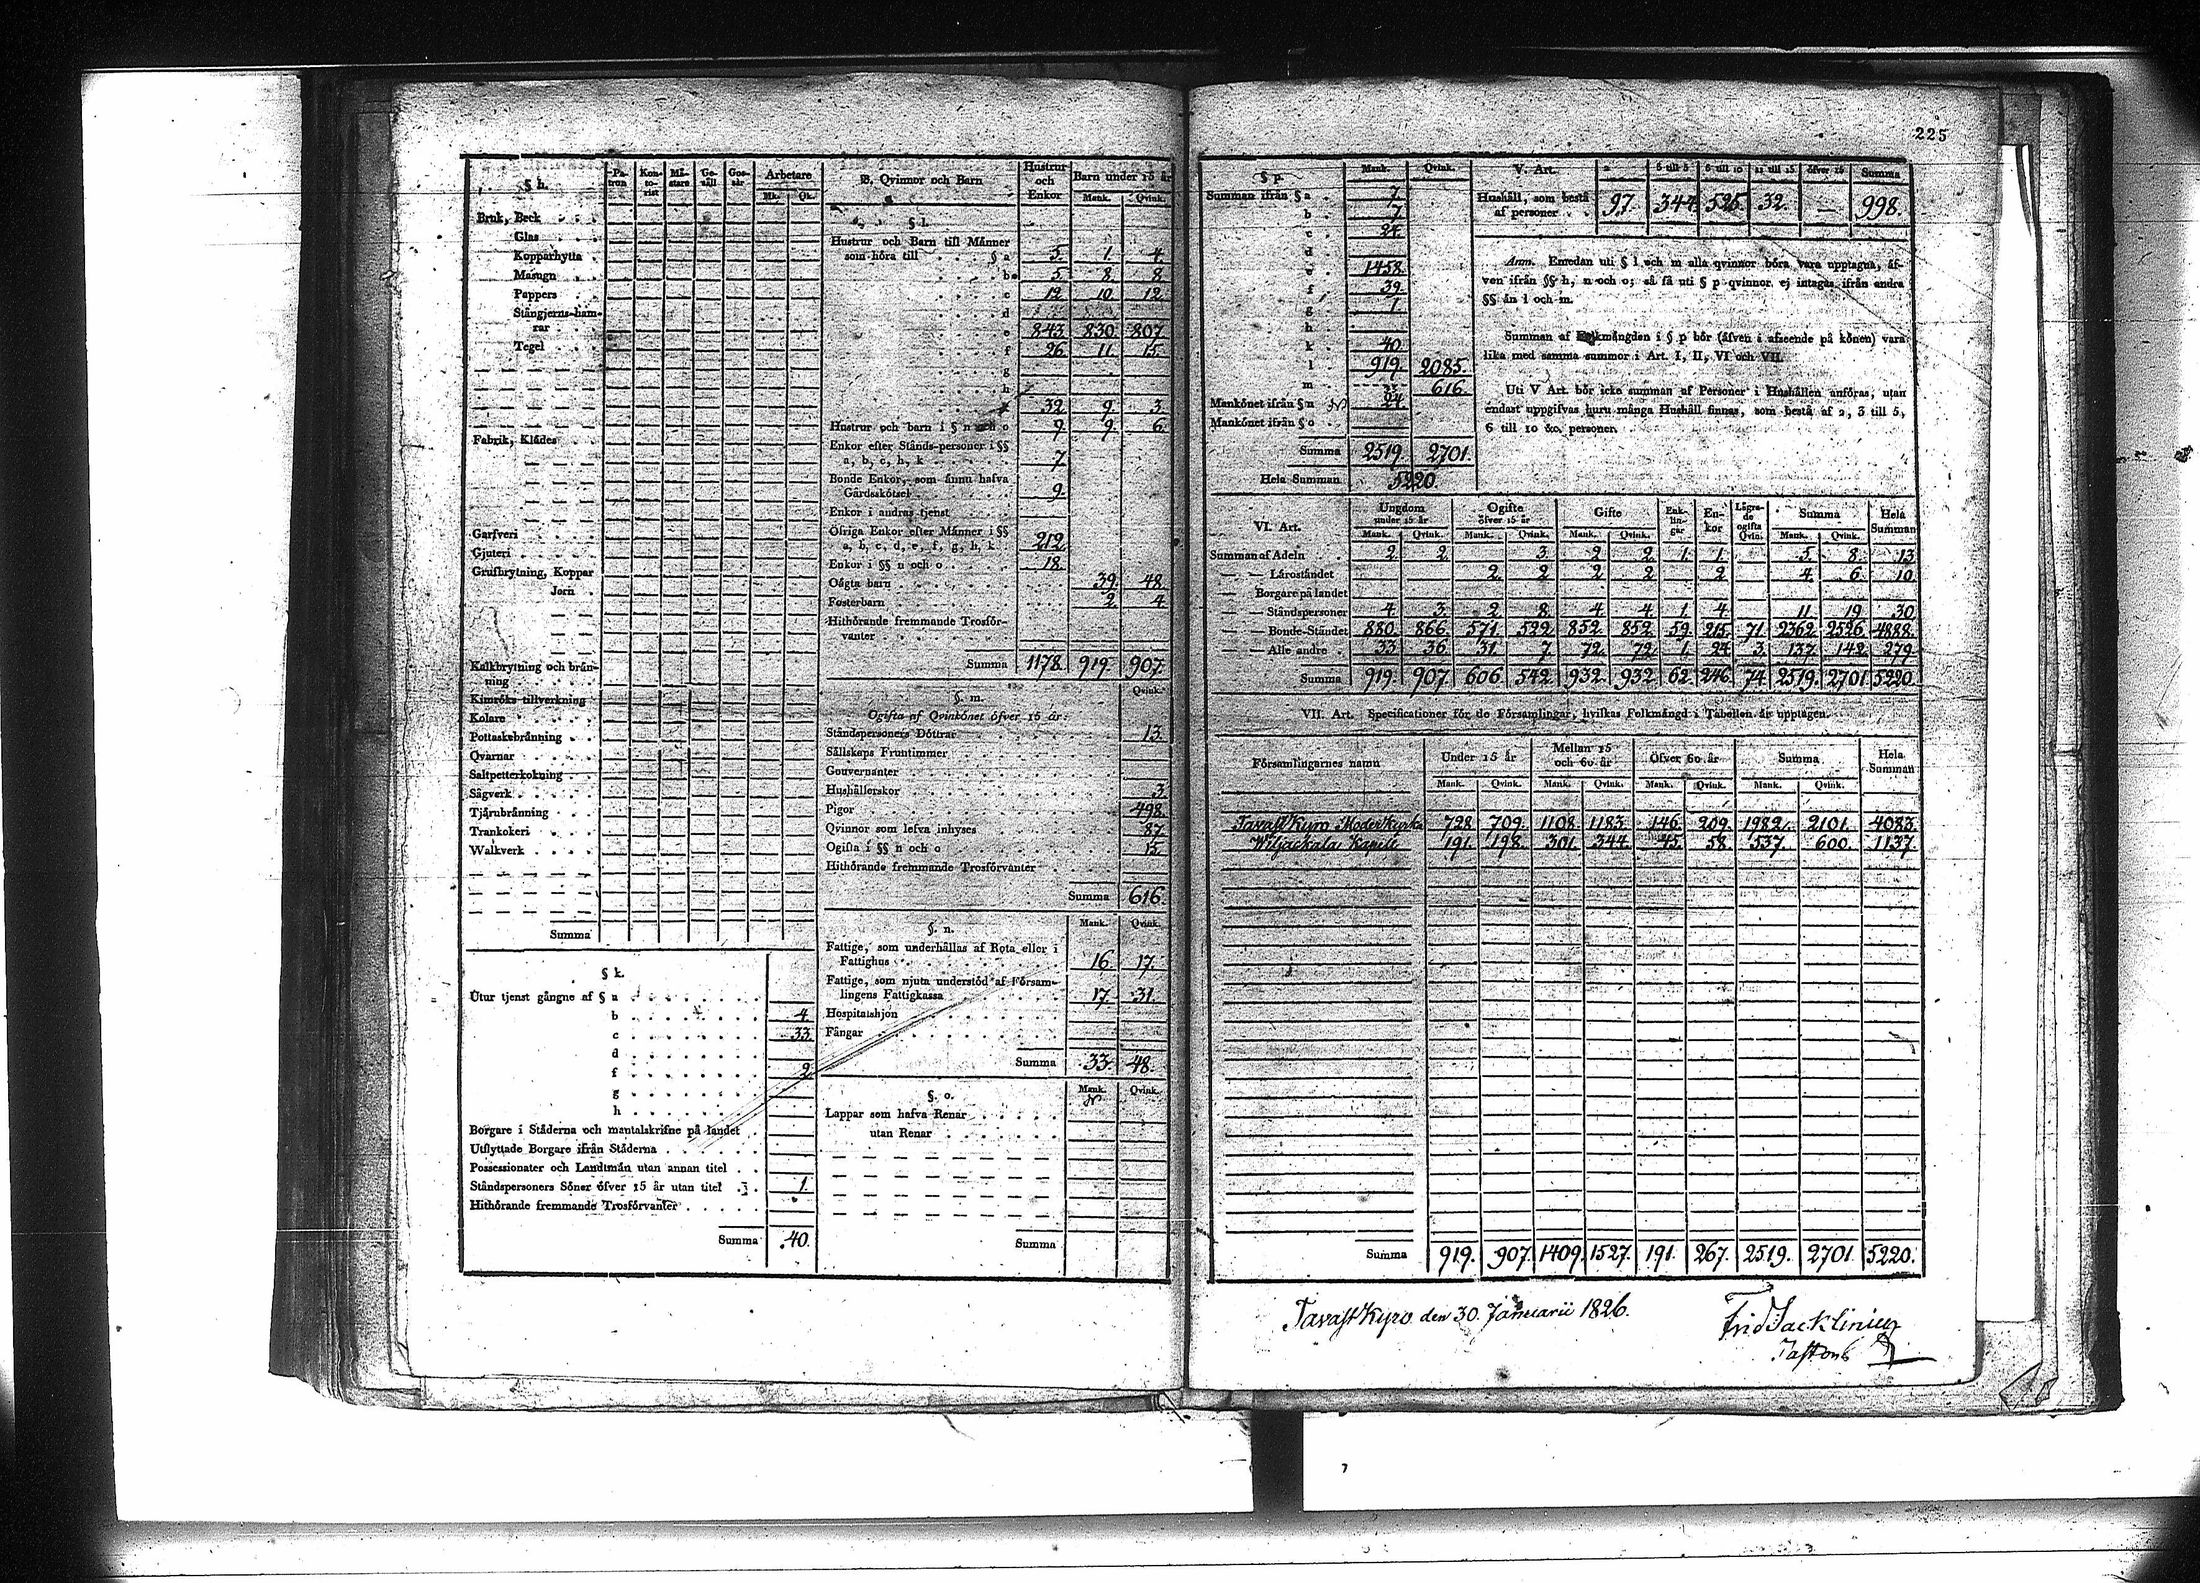 225
§ h.
Pa-tron Kon-to-rist Mä-stare Ge-säll Gos-sar Arbetare
Mk. Qk.
Bruk, Beck
Glas
Kopparhytta
Masugn
Pappers
Stångjerns-ham-
rar
Tegel
Fabrik, Klädes
Garfveri
Gjuteri
Grufbrytning, Koppar
Jern
Kalkbrytning och brän-
ning
Kimröks tillverkning
Kolare
Pottaskebränning
Qvarnar
Saltpetterkokning
Sågverk
Tjärubränning
Trankokeri
Walkverk
Summa
§ k.
Utur tjenst gångne af § a
b 4.
c 33.
d
f 2.
g
h
Borgare i Städerna och mantalskrifne på landet
Utflyttade Borgare ifrån Städerna
Possessionater och Landtmän utan annan titel
Ståndspersoners Söner öfver 15 år utan titel 1.
Hithörande fremmande Trosförvanter
Summa 40.
B. Qvinnor och Barn
Hustrur och Enkor Barn under 15 år
Mank. Qvink.
§ l.
Hustrur och Barn till Männer
som höra till § a 5. 1. 4.
b 5. 8. 8.
c 12. 10. 12.
d
e 843. 830. 807.
f 26. 11. 15.
g
h
32. 9. 3.
Hustrur och barn i § n och o 9. 9. 6.
Enkor efter Stånds-personer i §§
a, b, c, h, k 7.
Bonde Enkor, som ännu hafva
Gårdsskötsel 9.
Enkor i andras tjenst
Öfriga Enkor efter Männer i §§
a, b, c, d, e, f, g, h, k 212.
Enkor i §§ n och o 18.
Oägta barn 39. 48.
Fosterbarn 2. 4.
Hithörande fremmande Trosför-
vanter
Summa 1178. 919. 907.
§. m.
Qvink.
Ogifta af Qvinkönet öfver 15 år:
Ståndspersoners Döttrar 13.
Sällskaps Fruntimmer
Gouvernanter
Hushållerskor 3.
Pigor 498.
Qvinnor som lefva inhyses 87.
Ogifta i §§ n och o 15.
Hithörande fremmande Trosförvanter
Summa 616.
§. n.
Mank. Qvink.
Fattige, som underhållas af Rota eller i
Fattighus 16. 17.
Fattige, som njuta understöd af Försam-
lingens Fattigkassa 17. 31.
Hospitalshjon
Fångar
Summa 33. 48.
§. o.
Mank. Qvink.
Lappar som hafva Renar
utan Renar
Summa
§ p.
Mank. Qvink.
Summan ifrån § a 7.
b 7.
c 24.
d
e 1458.
f 39.
g 1.
h
k 40.
l 919. 2085.
m 616.
Mankönet ifrån § n 24.
Mankönet ifrån § o
Summa 2519. 2701.
Hela Summan 5220.
V. Art. 2 3 till 5 6 till 10 11 till 15 öfver 15 Summa
Hushåll, som bestå
af personer 97. 344. 525. 32. — 998.
Anm. Emedan uti § l och m alla qvinnor böra vara upptagna, äf-
ven ifrån §§ h, n och o; så få uti § p qvinnor ej intagas ifrån andra
§§ än l och m.
Summan af Folkmängden i § p bör (äfven i afseende på könen) vara
lika med samma summor i Art. I, II, VI och VII.
Uti V Art. bör icke summan af Personer i Hushållen anföras, utan
endast uppgifvas huru många Hushåll finnas, som bestå af 2, 3 till 5,
6 till 10 &c. personer.
VI. Art.
Ungdom under 15 år Ogifte öfver 15 år Gifte Enk-lin-gar En-kor Lägra-de ogifta Qvin. Summa Hela Summan
Mank. Qvink. Mank. Qvink. Mank. Qvink. Mank. Qvink.
Summan af Adeln 2. 2. 3. 2. 2. 1. 1. 5. 8. 13
— — Läroståndet 2. 2. 2. 2. 2. 4. 6. 10.
— Borgare på landet
— — Ståndspersoner 4. 3. 2. 8. 4. 4. 1. 4. 11. 19. 30
— — Bonde-Ståndet 880. 866. 571. 522. 852. 852. 59. 215. 71. 2362. 2526. 4888.
— — Alle andre 33. 36. 31. 7. 72. 72. 1. 24. 3. 137. 142. 279.
Summa 919. 907. 606. 542. 932. 932. 62. 246. 74. 2519. 2701. 5220.
VII. Art. Specificationer för de Församlingar, hvilkas Folkmängd i Tabellen är upptagen.
Församlingarnes namn Under 15 år Mellan 15 och 60 år Öfver 60 år Summa Hela Summan
Mank. Qvink. Mank. Qvink. Mank. Qvink. Mank. Qvink.
TavastKyro ModerKyrka 728. 709. 1108. 1183. 146. 209. 1982. 2101. 4083.
Wiljackala Kapell 191. 198. 301. 344. 45. 58. 537. 600. 1137.
Summa 919. 907. 1409. 1527. 191. 267. 2519. 2701. 5220.
TavastKyro den 30. Januarii 1826.